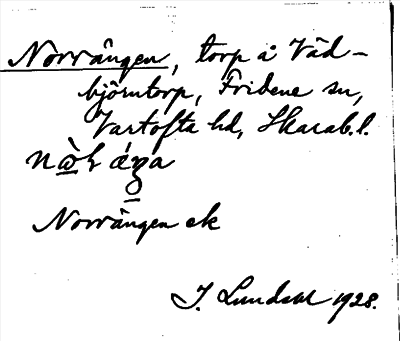 Norrängen, torp å Väd-
björntorp, Fridene sn,
Vartofta hd, Skarab. l.
Norrängen ek
J. Lundahl 1928.